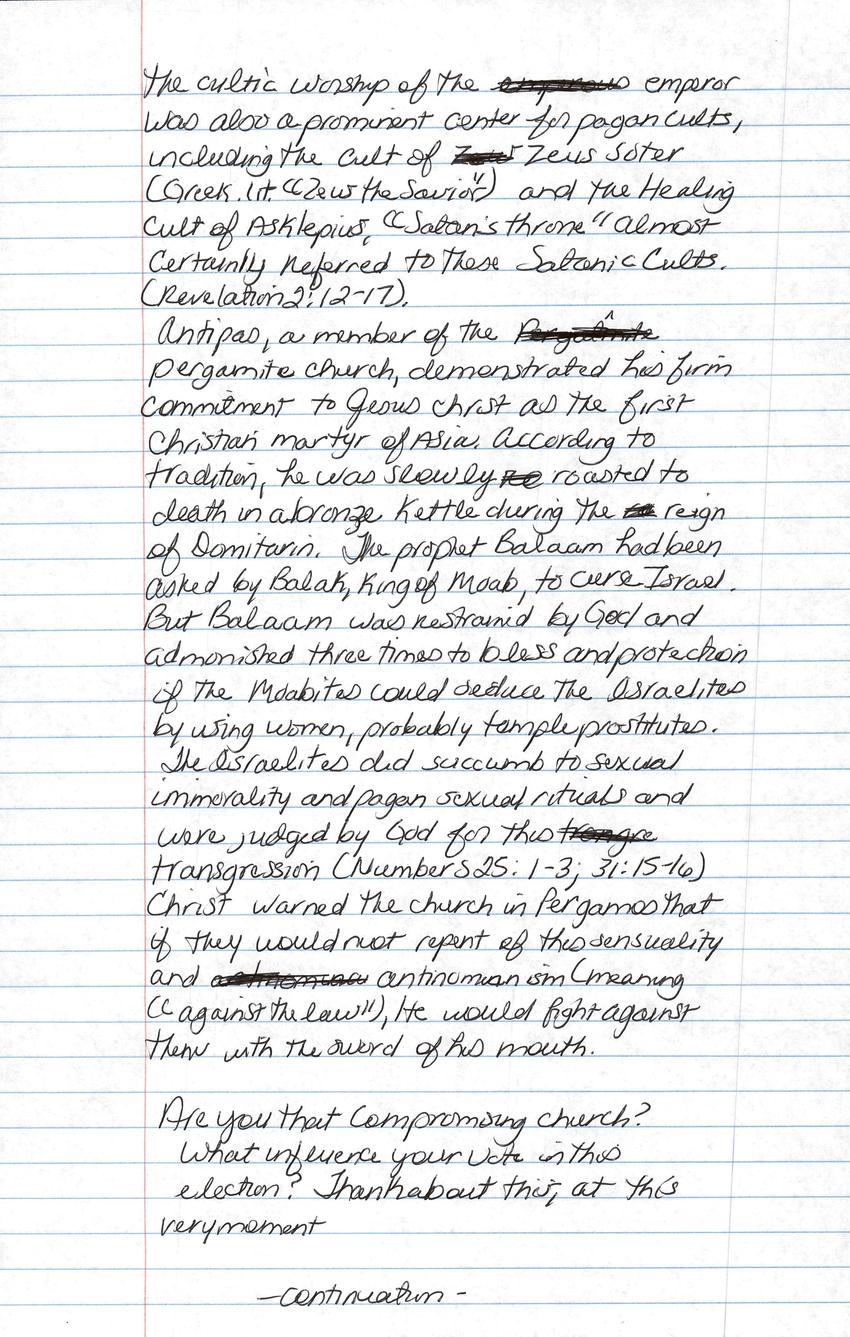 The cultic worship of the emperor
was also a prominent center for pagan cults,
including the cult of Zeus Soter
(Greek. lit. "Zeus the Savior") and the Healing
cult of Asklepius, "Satan's throne" almost
certainly referred to these Satanic Cults.
(Revelation 2:12-17).
Antipas, a member of the
pergamite church, demonstrated his firm
commitment to Jesus Christ as the first
Christian martyr of Asia. According to
tradition, he was slowly roasted to
death in a bronze Kettle during the reign
of Domitarin. The prophet Balaam had been
asked by Balak, King of Moab, to curse Israel.
But Balaam was restraind by God and
admonished three times to bless and protection
if the Moabites could seduce the Israelites
by using women, probably temple prostitutes.
The Israelites did succumb to sexual
immorality and pagan sexual rituals and
were judged by God for this
transgression (Numbers 25:1-3; 31:15-16)
Christ warned the church in Pergamos that
if they would not repent of this sensuality
and antinomianism (meaning
"against the law"), He would fight against
them with the sword of his mouth.
Are you that Compromising church?
What influence your vote in this
election? Thank about this, at this
very moment
-continuation-